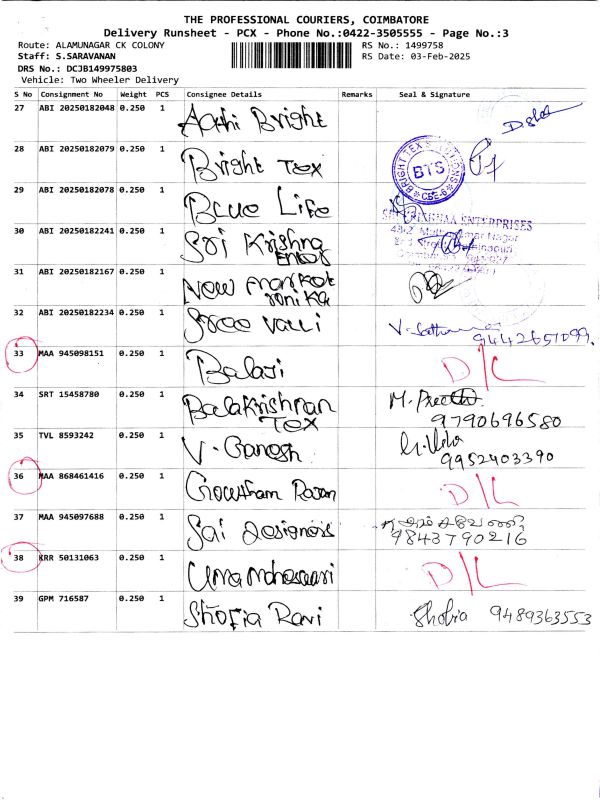 THE PROFESSIONAL COURIERS, COIMBATORE
Delivery Runsheet - PCX - Phone No.:0422-3505555 - Page No.:3
Route: ALAMUNAGAR CK COLONY RS No.: 1499758
Staff: S.SARAVANAN RS Date: 03-Feb-2025
DRS No.: DCJB149975803
Vehicle: Two Wheeler Delivery
S No Consignment No Weight PCS Consignee Details Remarks Seal & Signature
27 ABI 20250182048 0.250 1 Aathi Bright
28 ABI 20250182079 0.250 1 Bright Tex BRIGHT TEX BTS CBE-6
29 ABI 20250182078 0.250 1 Blue Life
30 ABI 20250182241 0.250 1 Sri Krishna ENTERPRISES
31 ABI 20250182167 0.250 1 New market
32 ABI 20250182234 0.250 1 Sree Valli 9442651099.
33 MAA 945098151 0.250 1 Balaji D/L
34 SRT 15458780 0.250 1 Balakrishnan Tex M. 9790696580
35 TVL 8593242 0.250 1 V. Ganesh 9952403390
36 MAA 868461416 0.250 1 Gowtham D/L
37 MAA 945097688 0.250 1 Sai Designers 9843790216
38 KRR 50131063 0.250 1 D/L
39 GPM 716587 0.250 1 Shofia Rani Shobia 9489363553